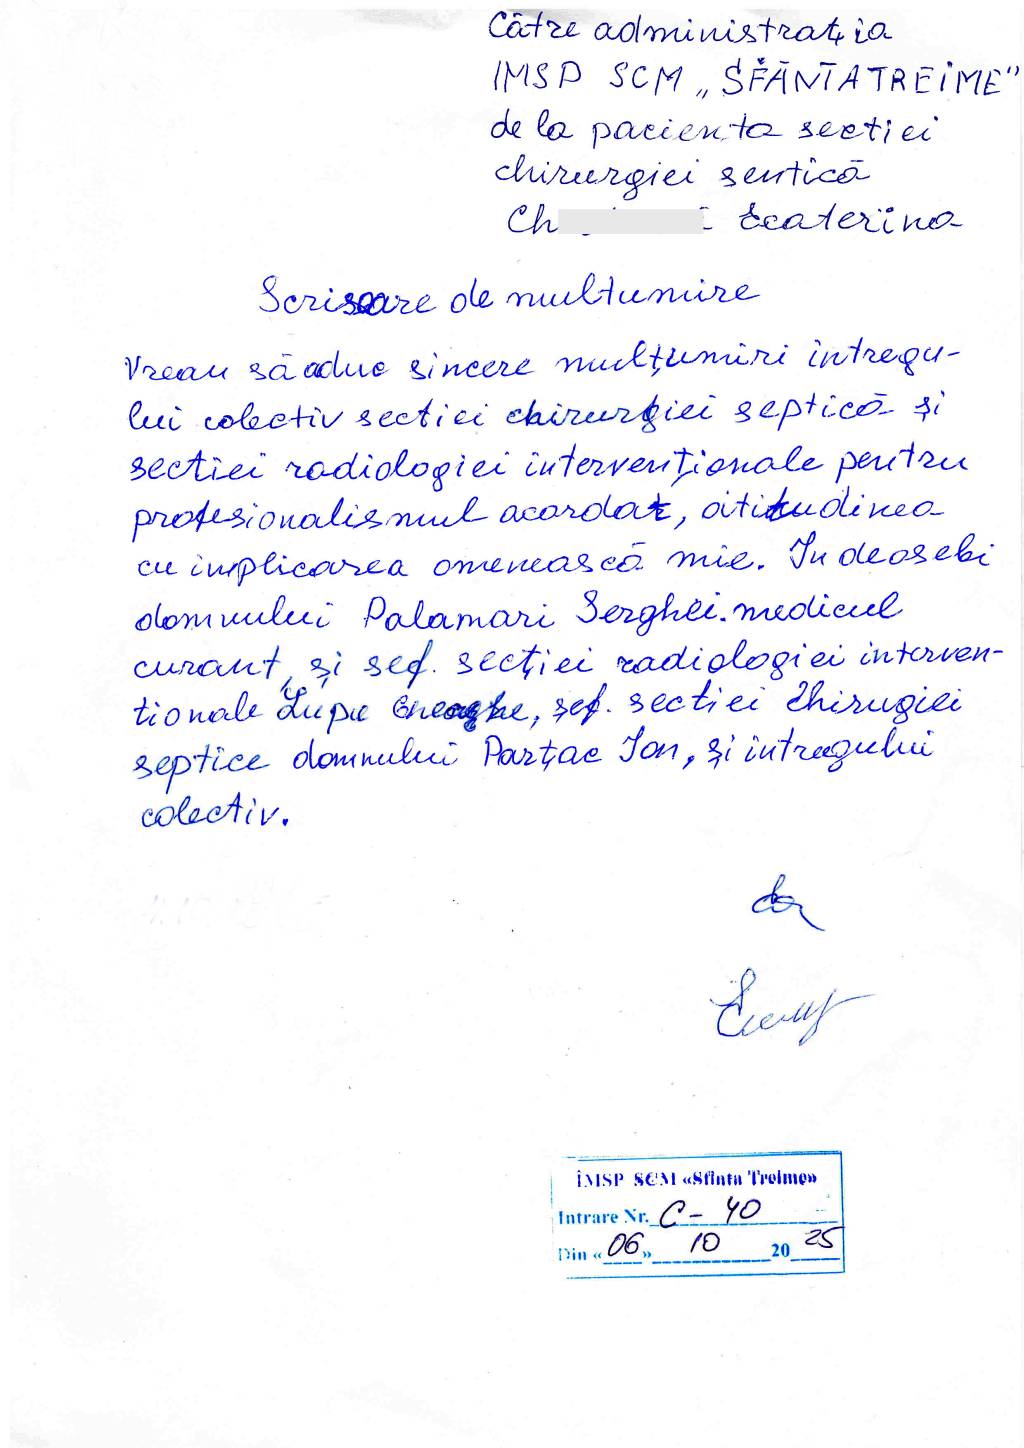 Către administrația
IMSP SCM „SFÂNTA TREIME"
de la pacienta sectiei
chirurgiei sentică
Ch Ecaterina
Scrisoare de multumire
Vreau să aduc sincere mulțumiri intregu-
lui colectiv sectiei chirurgiei septică și
sectiei radiologiei intervenționale pentru
profesionalismul acordat, atitudinea
cu implicarea omenească mie. In deosebi
domnului Palamari Serghei. medicul
curant, și șef. secției radiologiei interven-
tionale Lupu, șef. sectiei Chirugiei
septice domnului Parțac Ion, și intregului
colectiv.
IMSP SCM «Sfinta Treime»
Intrare Nr. C-40
Din «06» 10 2025